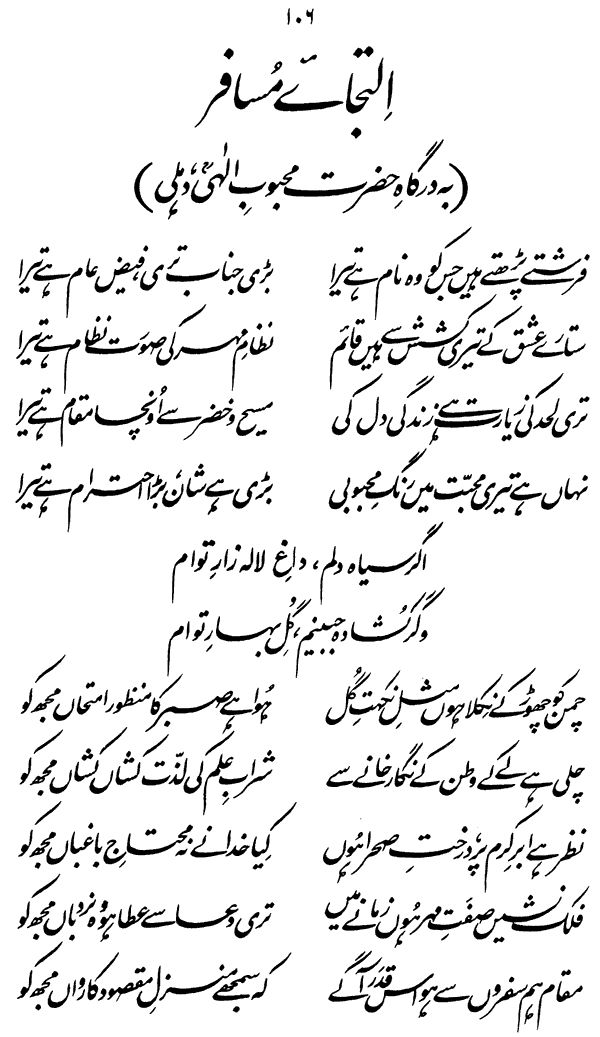 ۱۰۶
اِلتجائے مُسافر
(بہ درگاہِ حضرت محبوبِ الٰہیؒ، دہلی)
فرشتے پڑھتے ہیں جس کو وہ نام ہے تیرا بڑی جناب تری، فیض عام ہے تیرا
ستارے عشق کے تیری کشش سے ہیں قائم نظامِ مہر کی صورت نظام ہے تیرا
تری لحد کی زیارت ہے زندگی دل کی مسیح و خضر سے اُونچا مقام ہے تیرا
نہاں ہے تیری محبّت میں رنگِ محبوبی بڑی ہے شان، بڑا احترام ہے تیرا
اگر سیاہ دلم، داغِ لالہ زارِ تو ام
وگر کُشادہ جبینم، گُلِ بہارِ تو ام
چمن کو چھوڑ کے نِکلا ہوں مثلِ نکہتِ گُل ہُوا ہے صبر کا منظور امتحاں مجھ کو
چلی ہے لے کے وطن کے نگار خانے سے شرابِ علم کی لذّت کشاں کشاں مجھ کو
نظر ہے ابرِ کرم پر، درختِ صحرا ہُوں کِیا خدا نے نہ محتاجِ باغباں مجھ کو
فلک نشیں صفَتِ مہر ہُوں زمانے میں تری دعا سے عطا ہو وہ نردباں مجھ کو
مقام ہم سفروں سے ہو اس قدَر آگے کہ سمجھے منزلِ مقصود کارواں مجھ کو